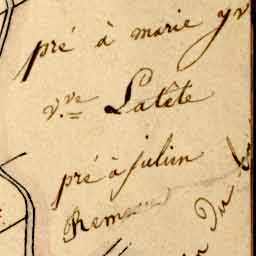 pré à marie yv
v.ve Latête
pré à julien
Rem
Du